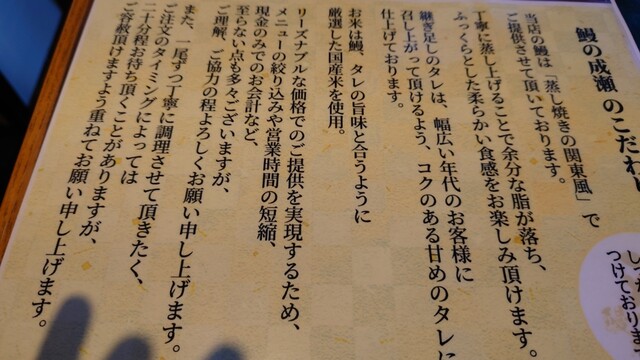 鰻の成瀬のこだわ
当店の鰻は「蒸し焼きの関東風」で
ご提供させて頂いております。
丁寧に蒸し上げることで余分な脂が落ち、
ふっくらとした柔らかい食感をお楽しみ頂けます。
継ぎ足しのタレは、幅広い年代のお客様に
召し上がって頂けるよう、コクのある甘めのタレに
仕上げております。
お米は鰻、タレの旨味と合うように
厳選した国産米を使用。
リーズナブルな価格でのご提供を実現するため、
メニューの絞り込みや営業時間の短縮、
現金のみでのお会計など、
至らない点も多々ございますが、
ご理解、ご協力の程よろしくお願い申し上げます。
また、一尾ずつ丁寧に調理させて頂きたく、
ご注文のタイミングによっては
二十分程お待ち頂くことがありますが、
ご容赦頂けますよう重ねてお願い申し上げます。
つけております